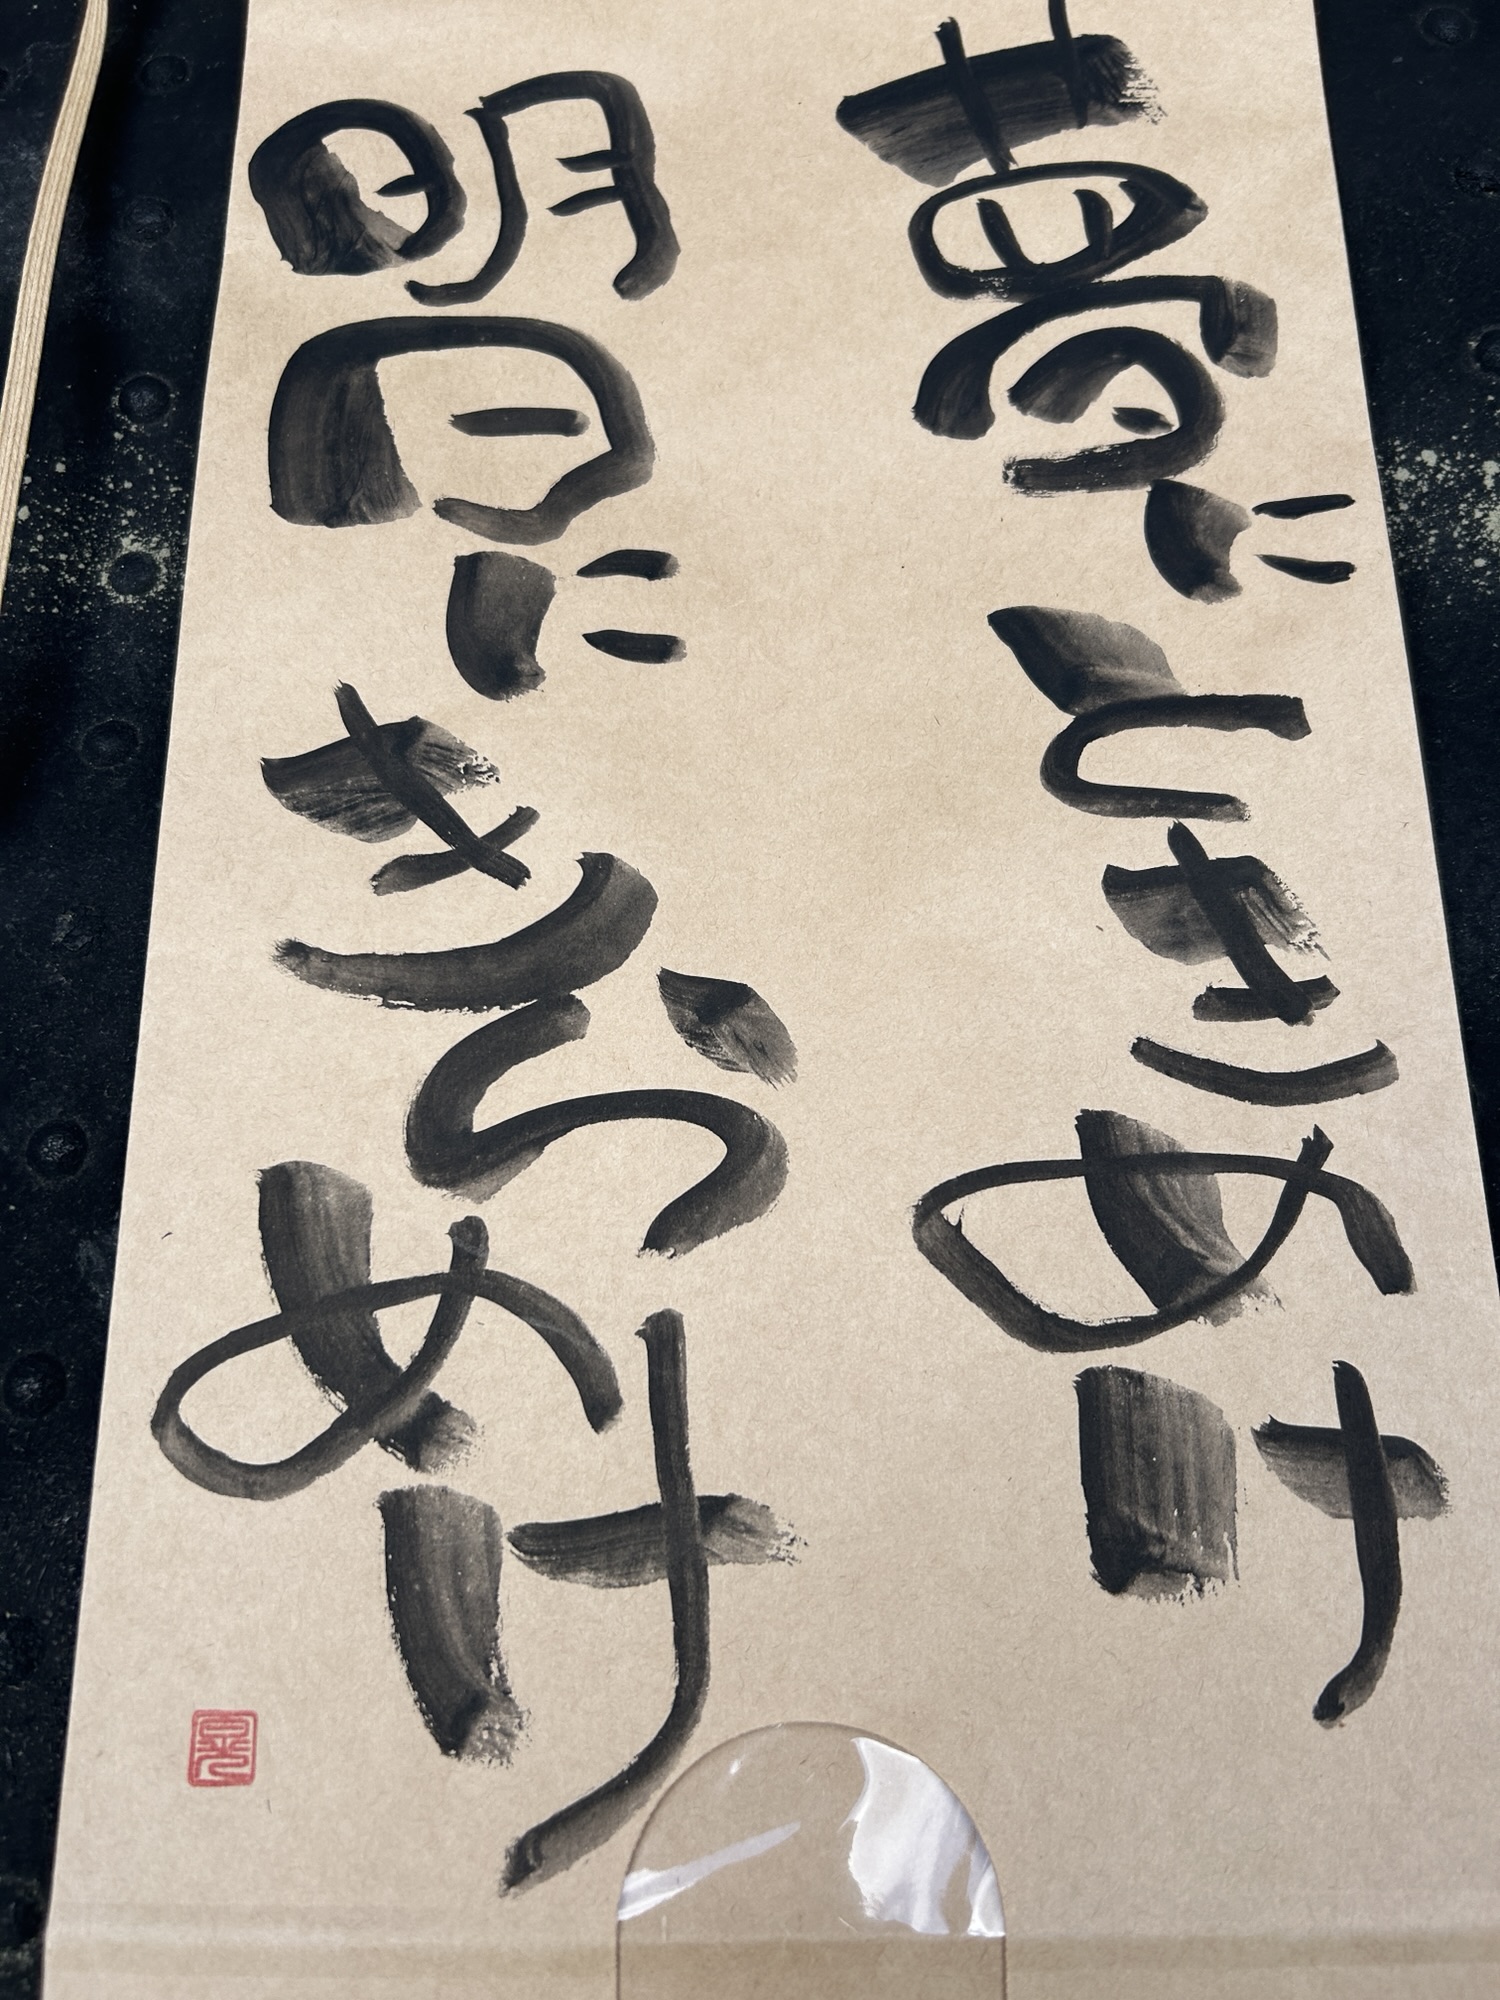 夢にときめけ
明日にきらめけ